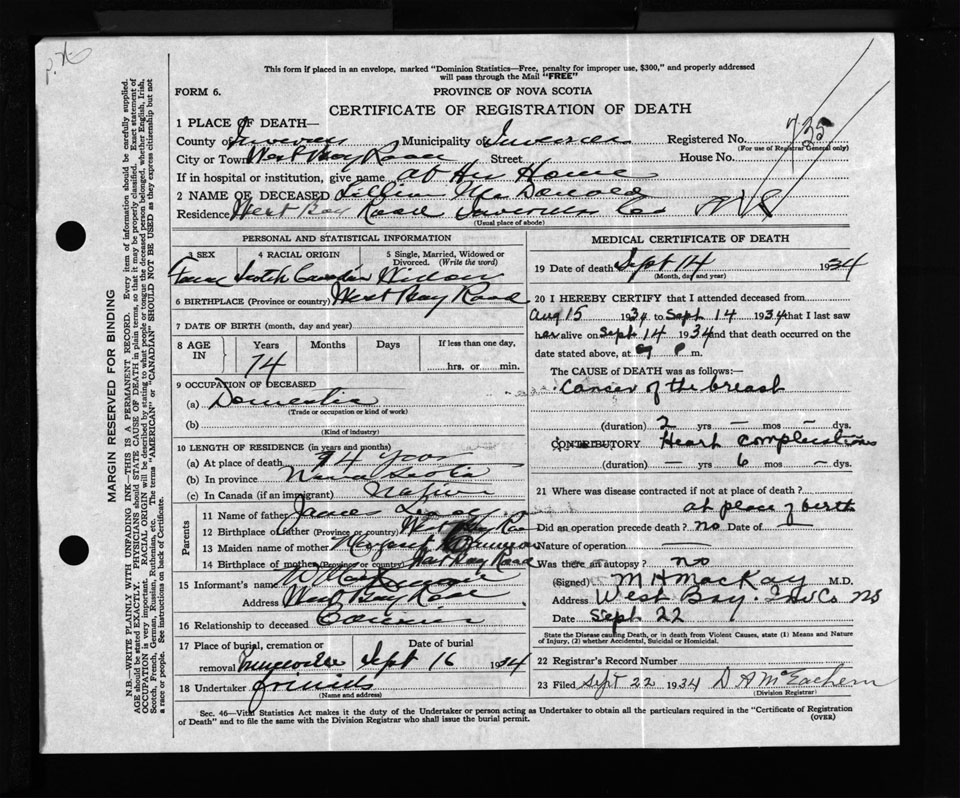 This form if placed in an envelope, marked "Dominion Statistics—Free, penalty for improper use, $300," and properly addressed
will pass through the Mail "FREE"
FORM 6.
PROVINCE OF NOVA SCOTIA
CERTIFICATE OF REGISTRATION OF DEATH
1 PLACE OF DEATH—
County of Inverness Municipality of Inverness Registered No. 735
(For use of Registrar General only)
City or Town West Bay Road Street House No.
If in hospital or institution, give name at Her Home
2 NAME OF DECEASED Lillian McDonald
Residence West Bay Road Inverness Co NS
(Usual place of abode)
PERSONAL AND STATISTICAL INFORMATION
3 SEX 4 RACIAL ORIGIN 5 Single, Married, Widowed or
Divorced. (Write the word)
Scotch Canadian Widow
6 BIRTHPLACE (Province or country) West Bay Road
7 DATE OF BIRTH (month, day and year)
8 AGE IN Years Months Days If less than one day,
74 hrs. or min.
9 OCCUPATION OF DECEASED
(a) Domestic
(Trade or occupation or kind of work)
(b)
(Kind of industry)
10 LENGTH OF RESIDENCE (in years and months)
(a) At place of death 74 years
(b) In province Nova Scotia
(c) In Canada (if an immigrant) Native
Parents
11 Name of father James
12 Birthplace of father (Province or country) West Bay Road
13 Maiden name of mother Margaret
14 Birthplace of mother (Province or country) West Bay Road
15 Informant's name
Address West Bay Road
16 Relationship to deceased Cousin
17 Place of burial, cremation or Date of burial
removal Sept 16 1934
18 Undertaker friends
(Name and address)
MEDICAL CERTIFICATE OF DEATH
19 Date of death Sept 14 1934
(Month, day and year)
20 I HEREBY CERTIFY that I attended deceased from
Aug 15 1934 to Sept 14 1934 that I last saw
her alive on Sept 14 1934 and that death occurred on the
date stated above, at 9 P m.
The CAUSE of DEATH was as follows:
Cancer of the breast
(duration) 2 yrs — mos — dys.
CONTRIBUTORY Heart complications
(duration) — yrs 6 mos — dys.
21 Where was disease contracted if not at place of death?
at place of birth
Did an operation precede death? no Date of
Nature of operation —
Was there an autopsy? no
(Signed) M H MacKay M.D.
Address West Bay. Inv Co NS
Date Sept 22
State the Disease causing Death, or in death from Violent Causes, state (1) Means and Nature
of Injury, (2) whether Accidental, Suicidal or Homicidal.
22 Registrar's Record Number
23 Filed Sept 22 1934 D A McEachern
(Division Registrar)
Sec. 46—Vital Statistics Act makes it the duty of the Undertaker or person acting as Undertaker to obtain all the particulars required in the "Certificate of Registration
of Death" and to file the same with the Division Registrar who shall issue the burial permit.
(OVER)
MARGIN RESERVED FOR BINDING
N.B.—WRITE PLAINLY WITH UNFADING INK—THIS IS A PERMANENT RECORD. Every item of information should be carefully supplied.
AGE should be stated EXACTLY. PHYSICIANS should STATE CAUSE OF DEATH in plain terms, so that it may be properly classified. Exact statement of
OCCUPATION is very important. RACIAL ORIGIN will be described by stating to what people or tongue the deceased person belonged, whether English, Irish,
Scotch, French, German, Russian, Ruthenian, etc. The terms "AMERICAN" or "CANADIAN" SHOULD NOT BE USED as they express citizenship but not
a race or people. See instructions on back of Certificate.